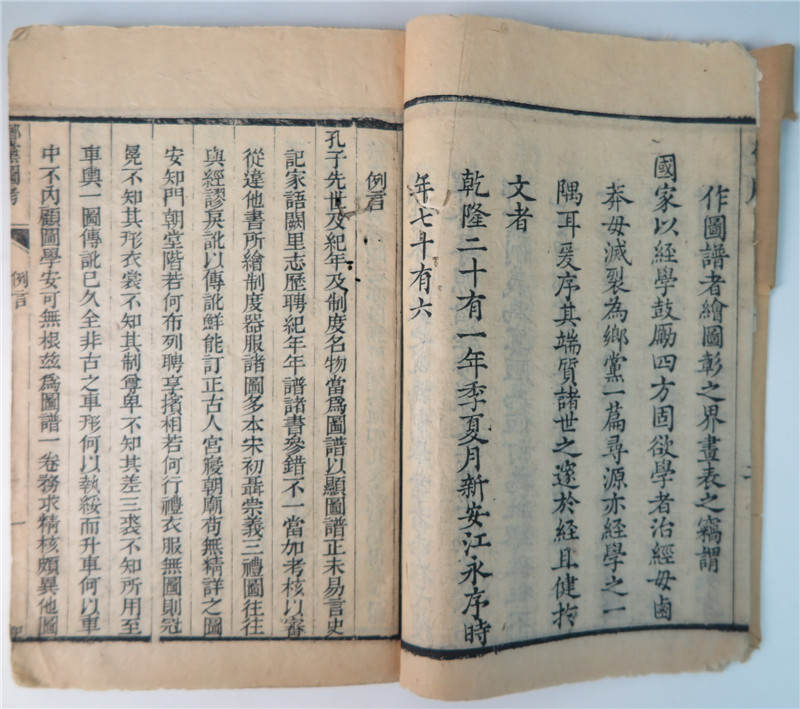 作圖譜者繪圖彰之界畫表之竊謂
國家以經學鼓勵四方固欲學者治經毋鹵
莽毋滅裂為鄉黨一篇尋源亦經學之一
隅耳爰序其端質諸世之邃於經且健於
文者
乾隆二十有一年季夏月新安江永序時
年七十有六
例言
孔子先世及紀年及制度名物當爲圖譜以顯圖譜正未易言史
記家語闕里志歷聘紀年年譜諸書參錯不一當加考核以審
從違他書所繪制度器服諸圖多本宋初聶崇義三禮圖往往
與經謬戾訛以傳訛鮮能訂正古人宮寢朝廟苟無精詳之圖
安知門朝堂階若何布列聘享擯相若何行禮衣服無圖則冠
冕不知其形衣裳不知其制尊卑不知其差三裘不知所用至
車輿一圖傳訛已久全非古之車形何以執綏而升車何以車
中不內顧圖學安可無根兹爲圖譜一卷務求精核頗異他圖
鄉黨圖考
例言
一